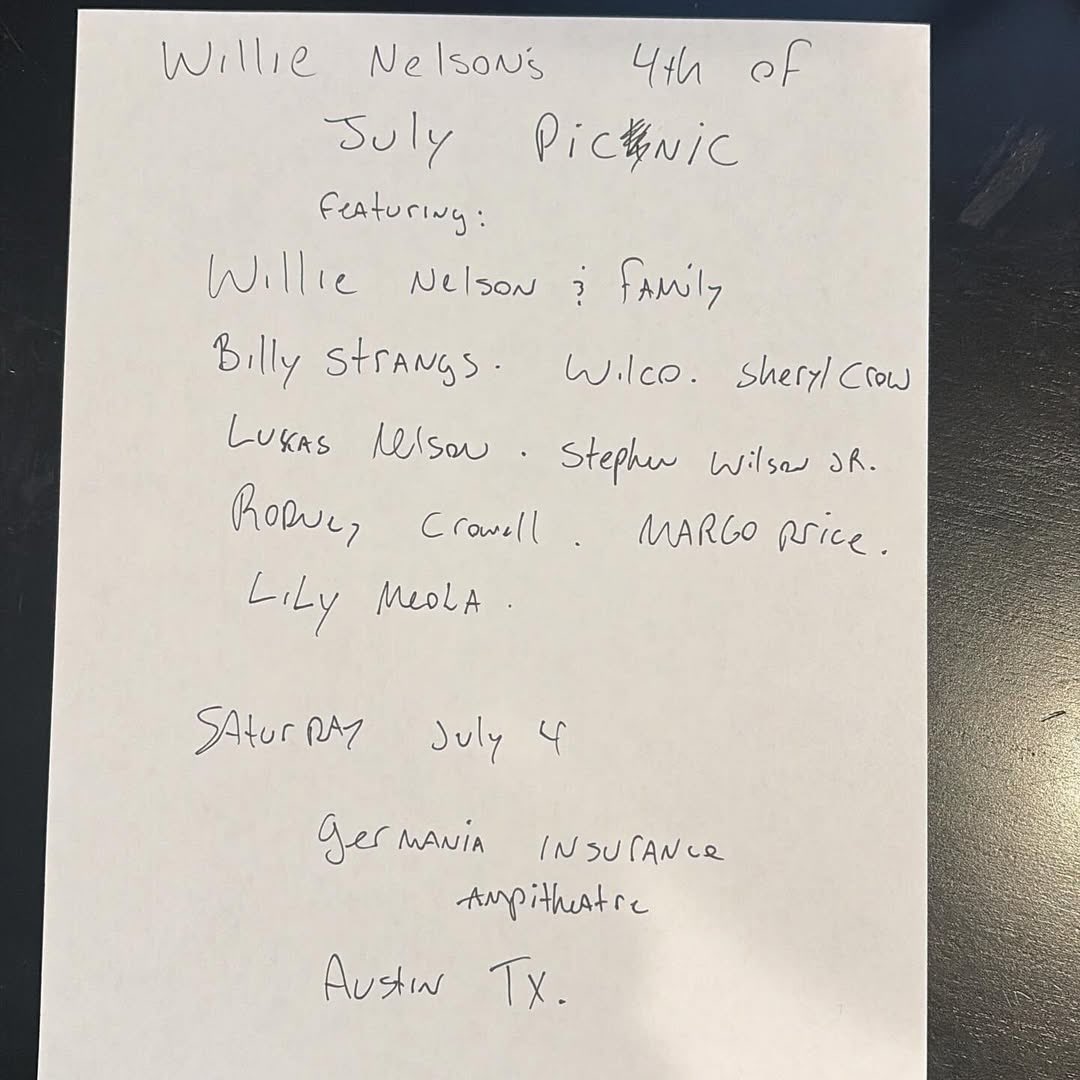 Willie Nelson's 4th of
July Picnic
Featuring:
Willie Nelson & Family
Billy Strangs. Wilco. Sheryl Crow
Lukas Nelson. Stephen Wilson JR.
Rodney Crowell. Margo Price.
Lily Meola.
Saturday July 4
Germania Insurance
Ampitheatre
Austin TX.